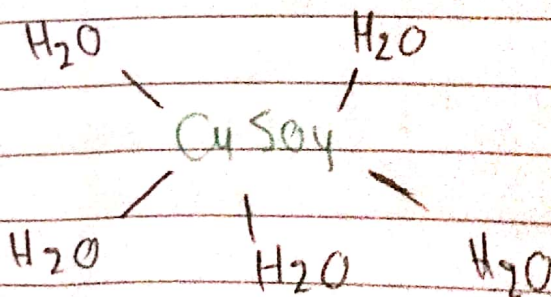 H₂O H₂O
CuSO₄
H₂O H₂O H₂O